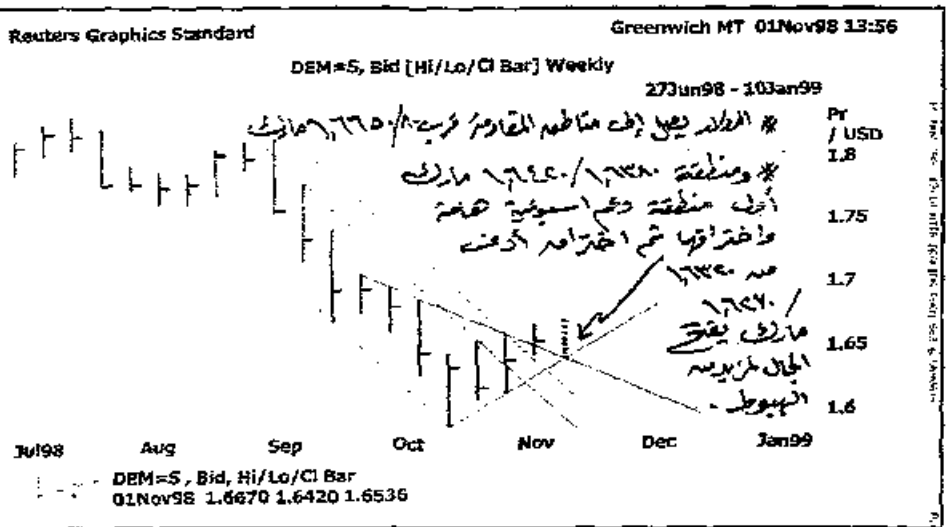 Reuters Graphics Standard
Greenwich MT 01Nov98 13:56
DEM=S, Bid [Hi/Lo/Cl Bar] Weekly
27Jun98 - 10Jan99
Pr
/ USD
* الدولار يصل إلى مناطق المقاومة قرب ١,٦٦٥٠/٨٠ مارك
* ومنطقة ١,٦٣٨٠/١,٦٤٢٠ مارك
أول منطقة دعم اسبوعية هامة
واختراقها ثم اختراق أدنى
من ١,٦٣٢٠
/١,٦٢٧٠
مارك يفتح
المجال لمزيد من
الهبوط .
1.8
1.75
1.7
1.65
1.6
Jul98 Aug Sep Oct Nov Dec Jan99
DEM=S , Bid, Hi/Lo/Cl Bar
01Nov98 1.6670 1.6420 1.6536